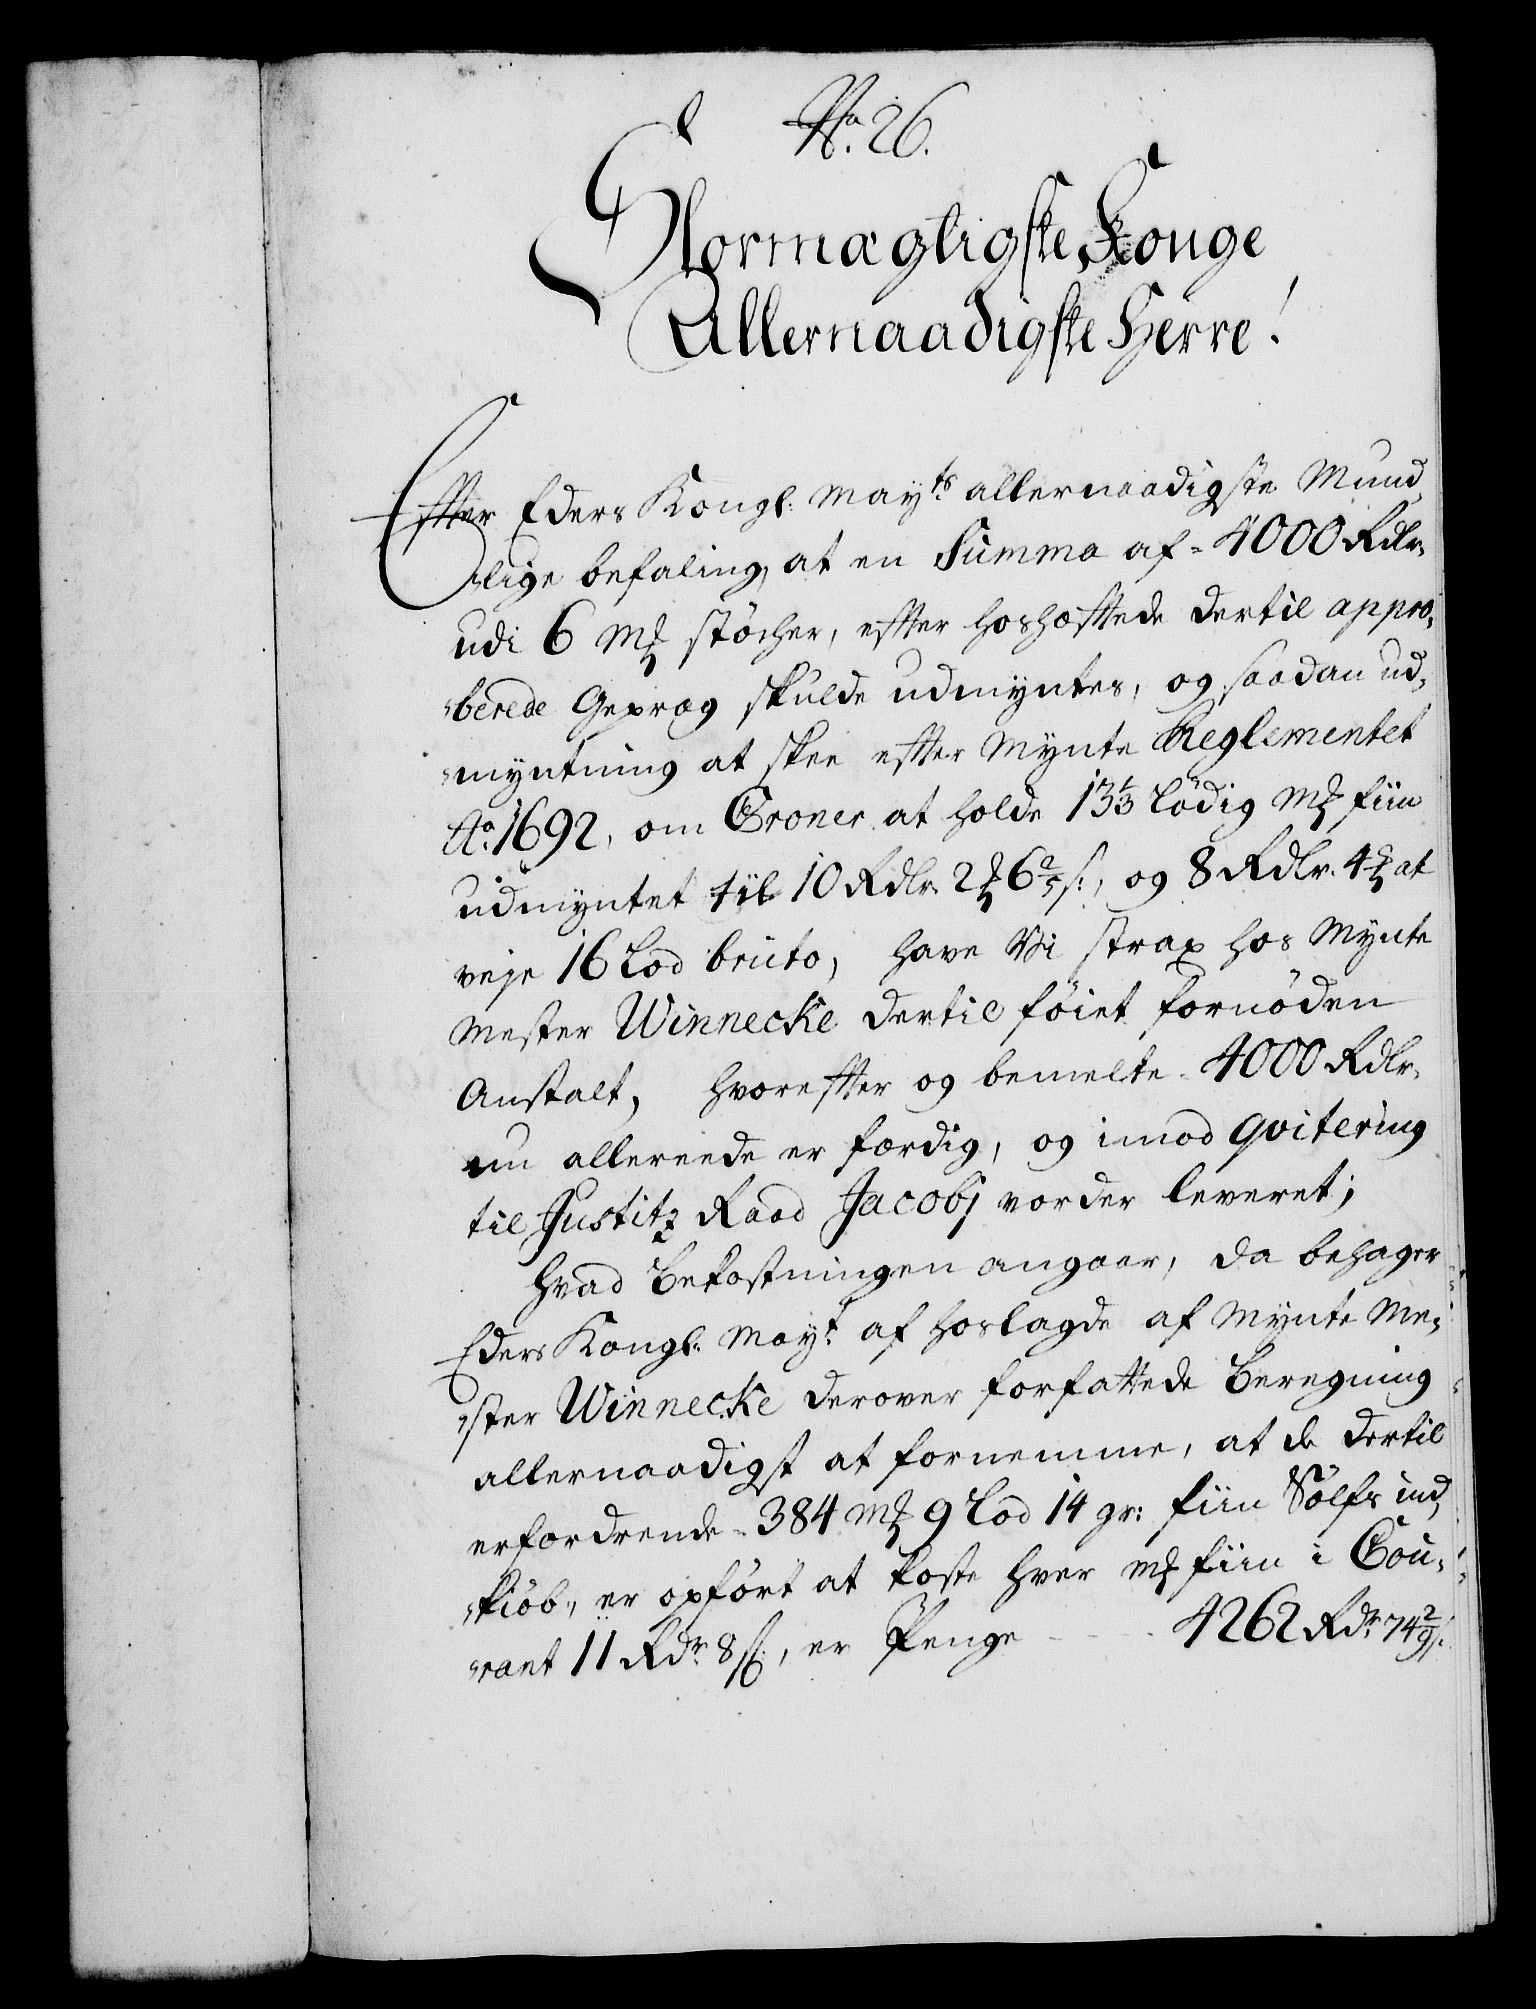 No. 26.
Stormægtigste Konge
Allernaadigste Herre!
Efter Eders Kongl: May:ts allernaadigste Mund,
lige befaling, at en Summa af 4000 Rdlr.
udi 6 Mk stöcher, effter hoshæfftede dertil appro,
berede Gepræg skulde udmyntes, og saadan ud,
myntning at skee effter Mynte Reglementet
Ao. 1692, om Croner at holde 13 1/3 lödig Mk fiin
udmyntet til 10 Rdlr. 2 Mk 6 2/5 s:, og 8 Rdlr. 4 Mk at
veje 16 Lod bruto, have Vi strax hos Mynte
Mester Winnecke dertil föiet fornöden
Anstalt, hvoreffter og bemelte 4000 Rdlr.
nu allereede er færdig, og imod qvitering
til Justitz Raad Jacobj vorder leveret;
Hvad Bekostningen angaar, da behager
Eders Kongl. May:t af hoslagde af Mynte Me,
ster Winnecke derover forfattede Beregning
allernaadigst at fornemme, at de dertil
erfordrende 384 Mk 9 Lod 14 gr: fiin Sölfs ind,
kiöb, er opfört at koste hver Mk fiin i Cou,
rant 11 Rdr. 8 s:, er Penge - - - 4262 Rdr. 74 2/9 s: